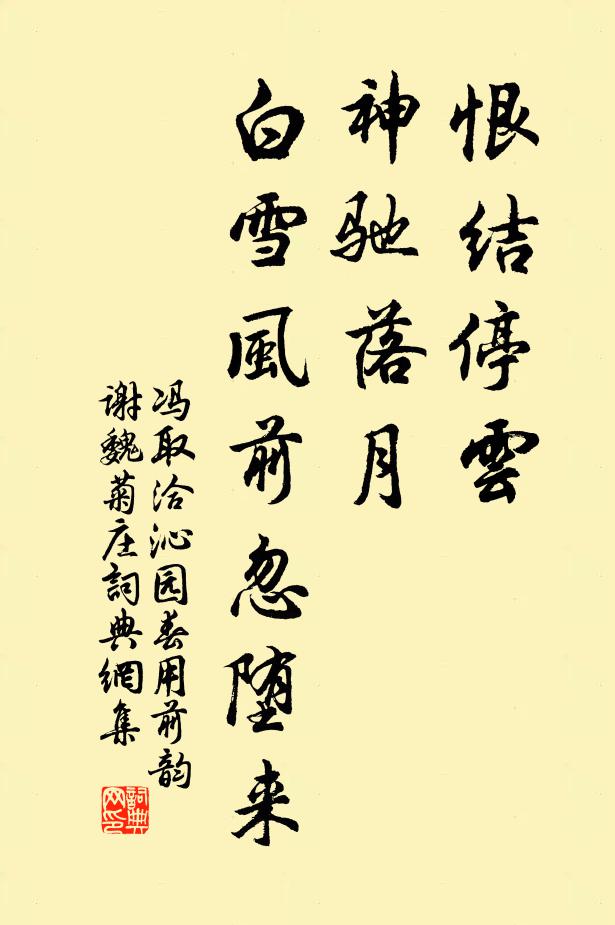 恨结停雲
神驰落月
白雪風前忽堕来
冯取洽沁园春用前韵
谢魏菊庄詞典網集
詞典
网印